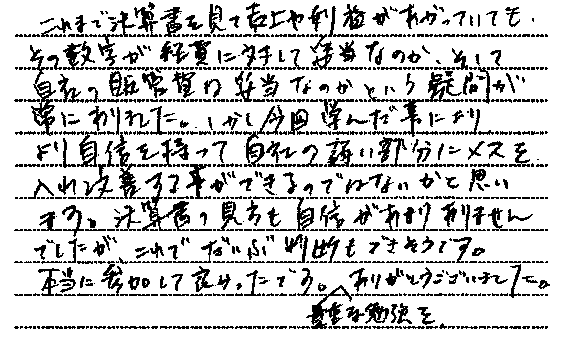 これまで決算書を見て売上や利益があがっていても、
その数字が経費に対して妥当なのか、そして
自社の販管費は妥当なのかという疑問が
常にありました。しかし今回学んだ事により
より自信を持って自社の弱い部分にメスを
入れ改善する事ができるのではないかと思い
ます。決算書の見方も自信があまりありません
でしたが、これでだいぶ判断もできそうです。
本当に参加して良かったです。ありがとうございました。
貴重な勉強を